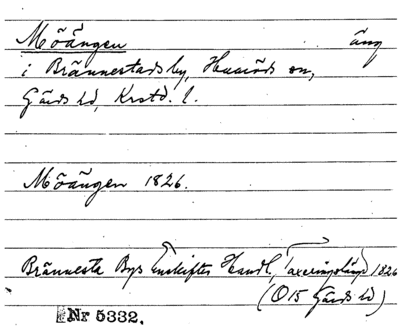 Möängen äng
i Brännestads by, Huaröds sn,
Gärds hd, Krstd. l.
Möängen 1826.
Brännesta Bys Enskiftes Handl, Taxeringslängd 1826
(O15 Gärds hd)
Nr 5332.